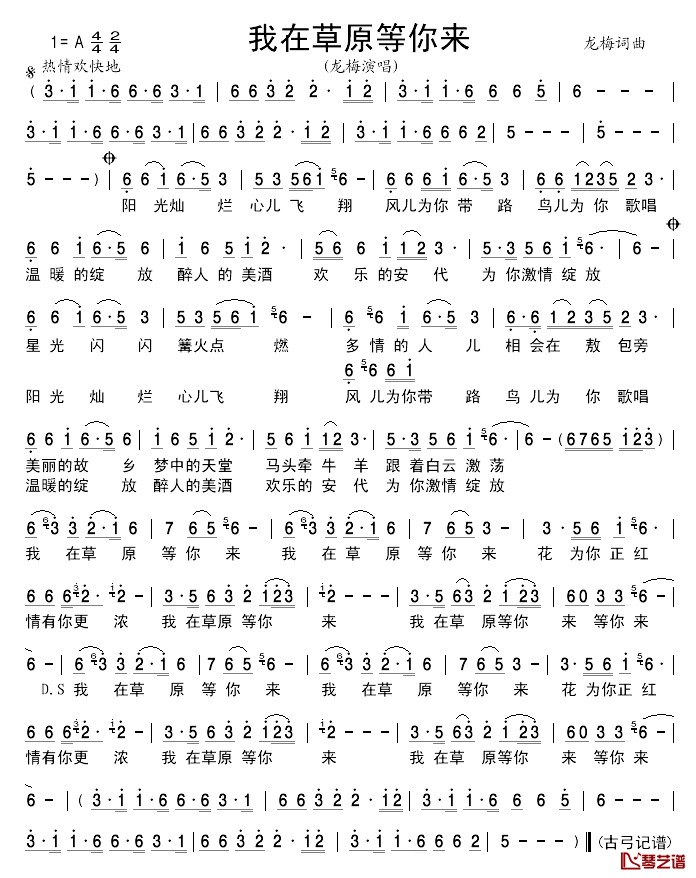 我在草原等你来
1= A 4/4 2/4
龙梅词曲
热情欢快地
(龙梅演唱)
( 3·1 1·6 6·6 6 3·1 | 6 6 3 2 2·1 2 | 3·1 1·6 6 6 5 | 6 - - - |
3·1 1·6 6·6 6 3·1 | 6 6 3 2 2·1 2 | 3·1 1·6 6 6 2 | 5 - - - | 5 - - - |
5 - - - ) | 6 6 1 6·5 3 | 5 3 5 6 1 6 - | 6 6 6 6 6·5 3 | 6 6 1 2 3 5 2 3· |
阳 光灿 烂 心儿 飞 翔 风儿为你 带 路 鸟儿为 你 歌唱
6 6 1 6·5 6 | 1 6 5 1 2· | 5 6 6 1 2 3 2· | 5·3 5 6 1 6· | 6 - )
温 暖的绽 放 醉人 的 美酒 欢 乐的安 代 为 你激情 绽 放
6 6 1 6·5 3 | 5 3 5 6 1 6 - | 6 1 6·5 3 | 6·6 1 2 3 5 2 3· |
星 光 闪 闪 篝火点 燃 多 情 的 人 儿 相 会在 敖 包旁
6 6 6 1
阳 光 灿 烂 心儿飞 翔 风 儿为你带 路 鸟 儿 为 你 歌唱
6 6 1 6·5 6 | 1 6·5 1 2· | 5 6 1 2 3 2· | 5·3 5 6 1 6· | 6 - ( 6 7 6 5 1 2 3 )
美丽的故 乡 梦中的天堂 马头牵 牛 羊 跟 着白云 激 荡
温暖的绽 放 醉人的美酒 欢乐的 安 代 为 你激情 绽 放
6 3 3 2·1 6 | 7 6 5 6 - | 6 3 3 2·1 6 | 7 6 5 6 - | 3·5 6 1 6· |
我 在草 原 等 你 来 我 在草 原 等 你 来 花 为你 正 红
6 6 6 2· 2 - | 3·5 6 3 2 1 2 3 | 2 - - - | 3·5 6 3 2 1 2 3 | 6 0 3 3 |
情有你更 浓 我 在草原 等你 来 我 在草 原等你 来 等你
6 - | 6 3 3 2·1 6 | 7 6 5 6 - | 6 3 3 2·1 6 | 7 6 5 6 - | 3·5 6 1 6· |
D.S 我 在草 原 等 你 来 我 在草 原 等 你 来 花 为你正 红
6 6 6 2· 2 - | 3·5 6 3 2 1 2 3 | 2 - - - | 3·5 6 6 2 1 2 3 | 6 0 3 3 |
情有你更 浓 我 在草原等你 来 我 在草 原等你 来 等你
6 - | ( 3·1 1·6 6·6 6 3·1 | 6 6 3 2 2·1 2 | 3·1 1·6 6 6 5 | 6 - |
3·1 1·6 6·6 6 3·1 | 6 6 3 2 2·1 2 | 3·1 1·6 6 6 2 | 5 - - - ) ‖ (古弓记谱)
琴艺谱